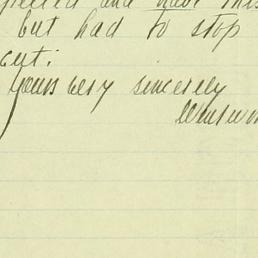 and have this
but had to stop
cut:
Yours very sincerely